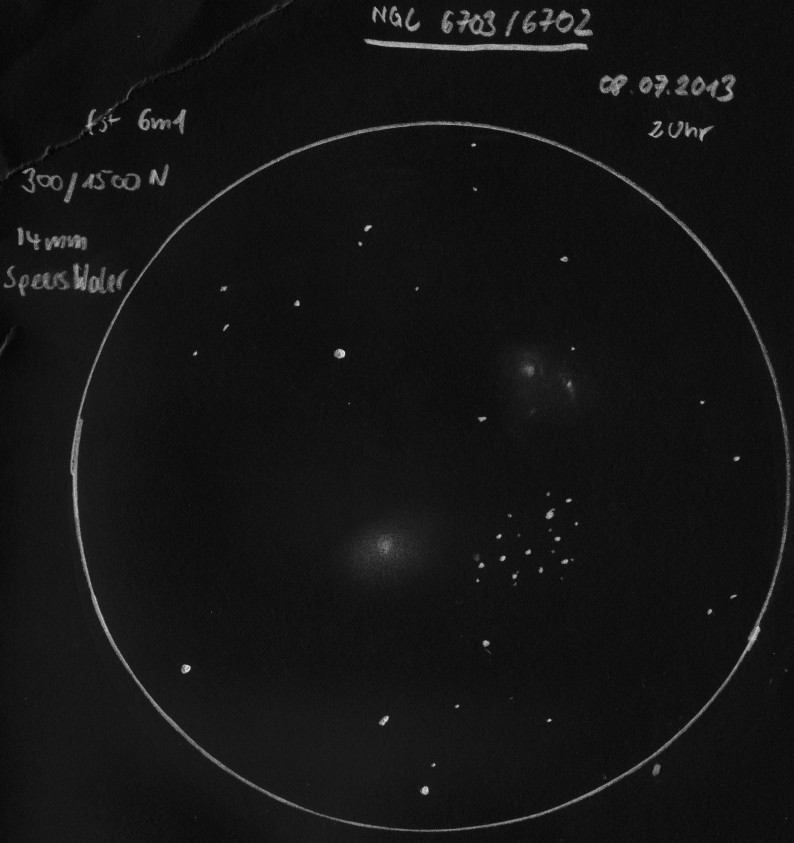 NGC 6703/6702
08.07.2013
2 Uhr
fst 6m1
300/1500 N
14mm
Speers Waler